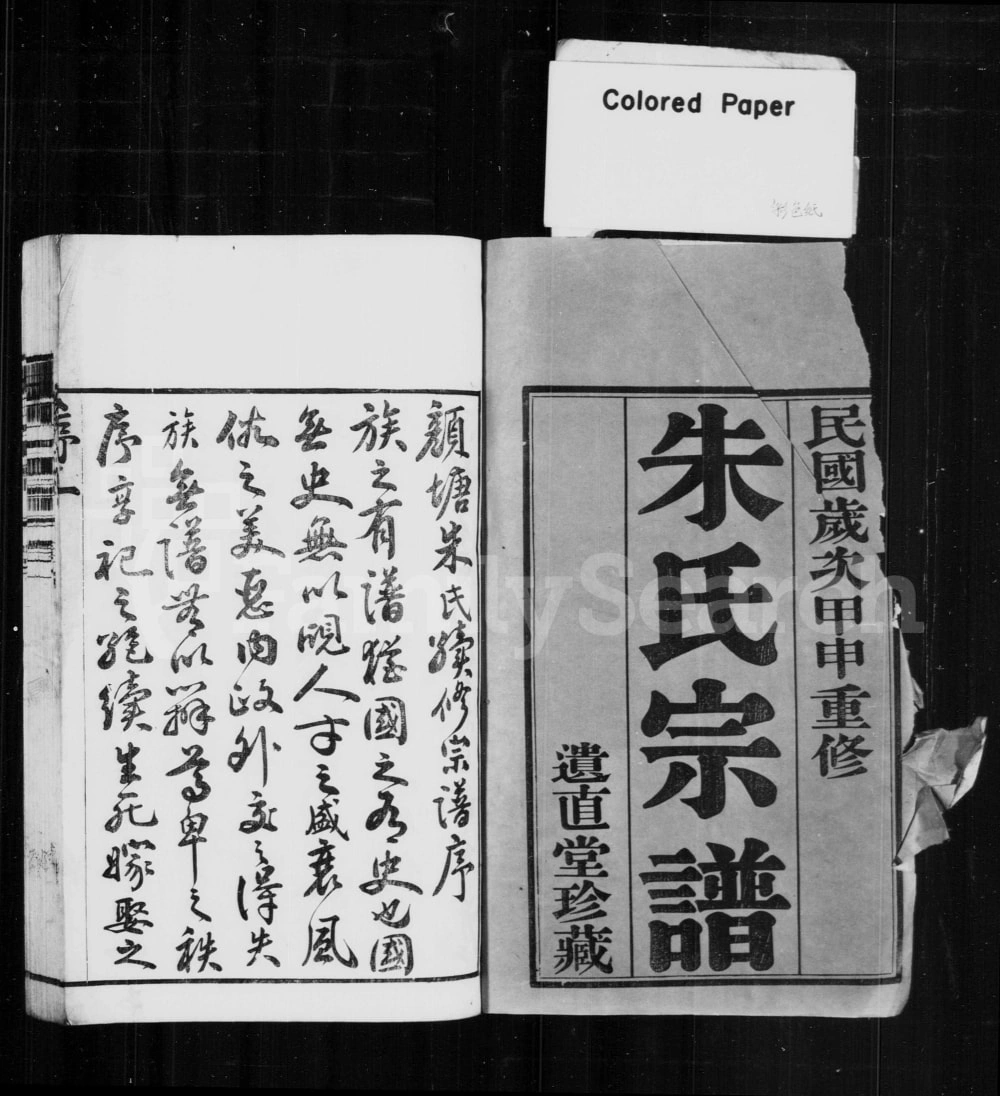 Colored Paper
彩色紙
民國歲次甲申重修
朱氏宗譜
遺直堂珍藏
顔塘朱氏續修宗譜序
族之有譜猶國之有史也國
無史無以覘人才之盛衰風
俗之美惡內政外交之得失
族無譜無以辨尊卑之秩
序享祀之絕續生死嫁娶之
序一
FamilySearch